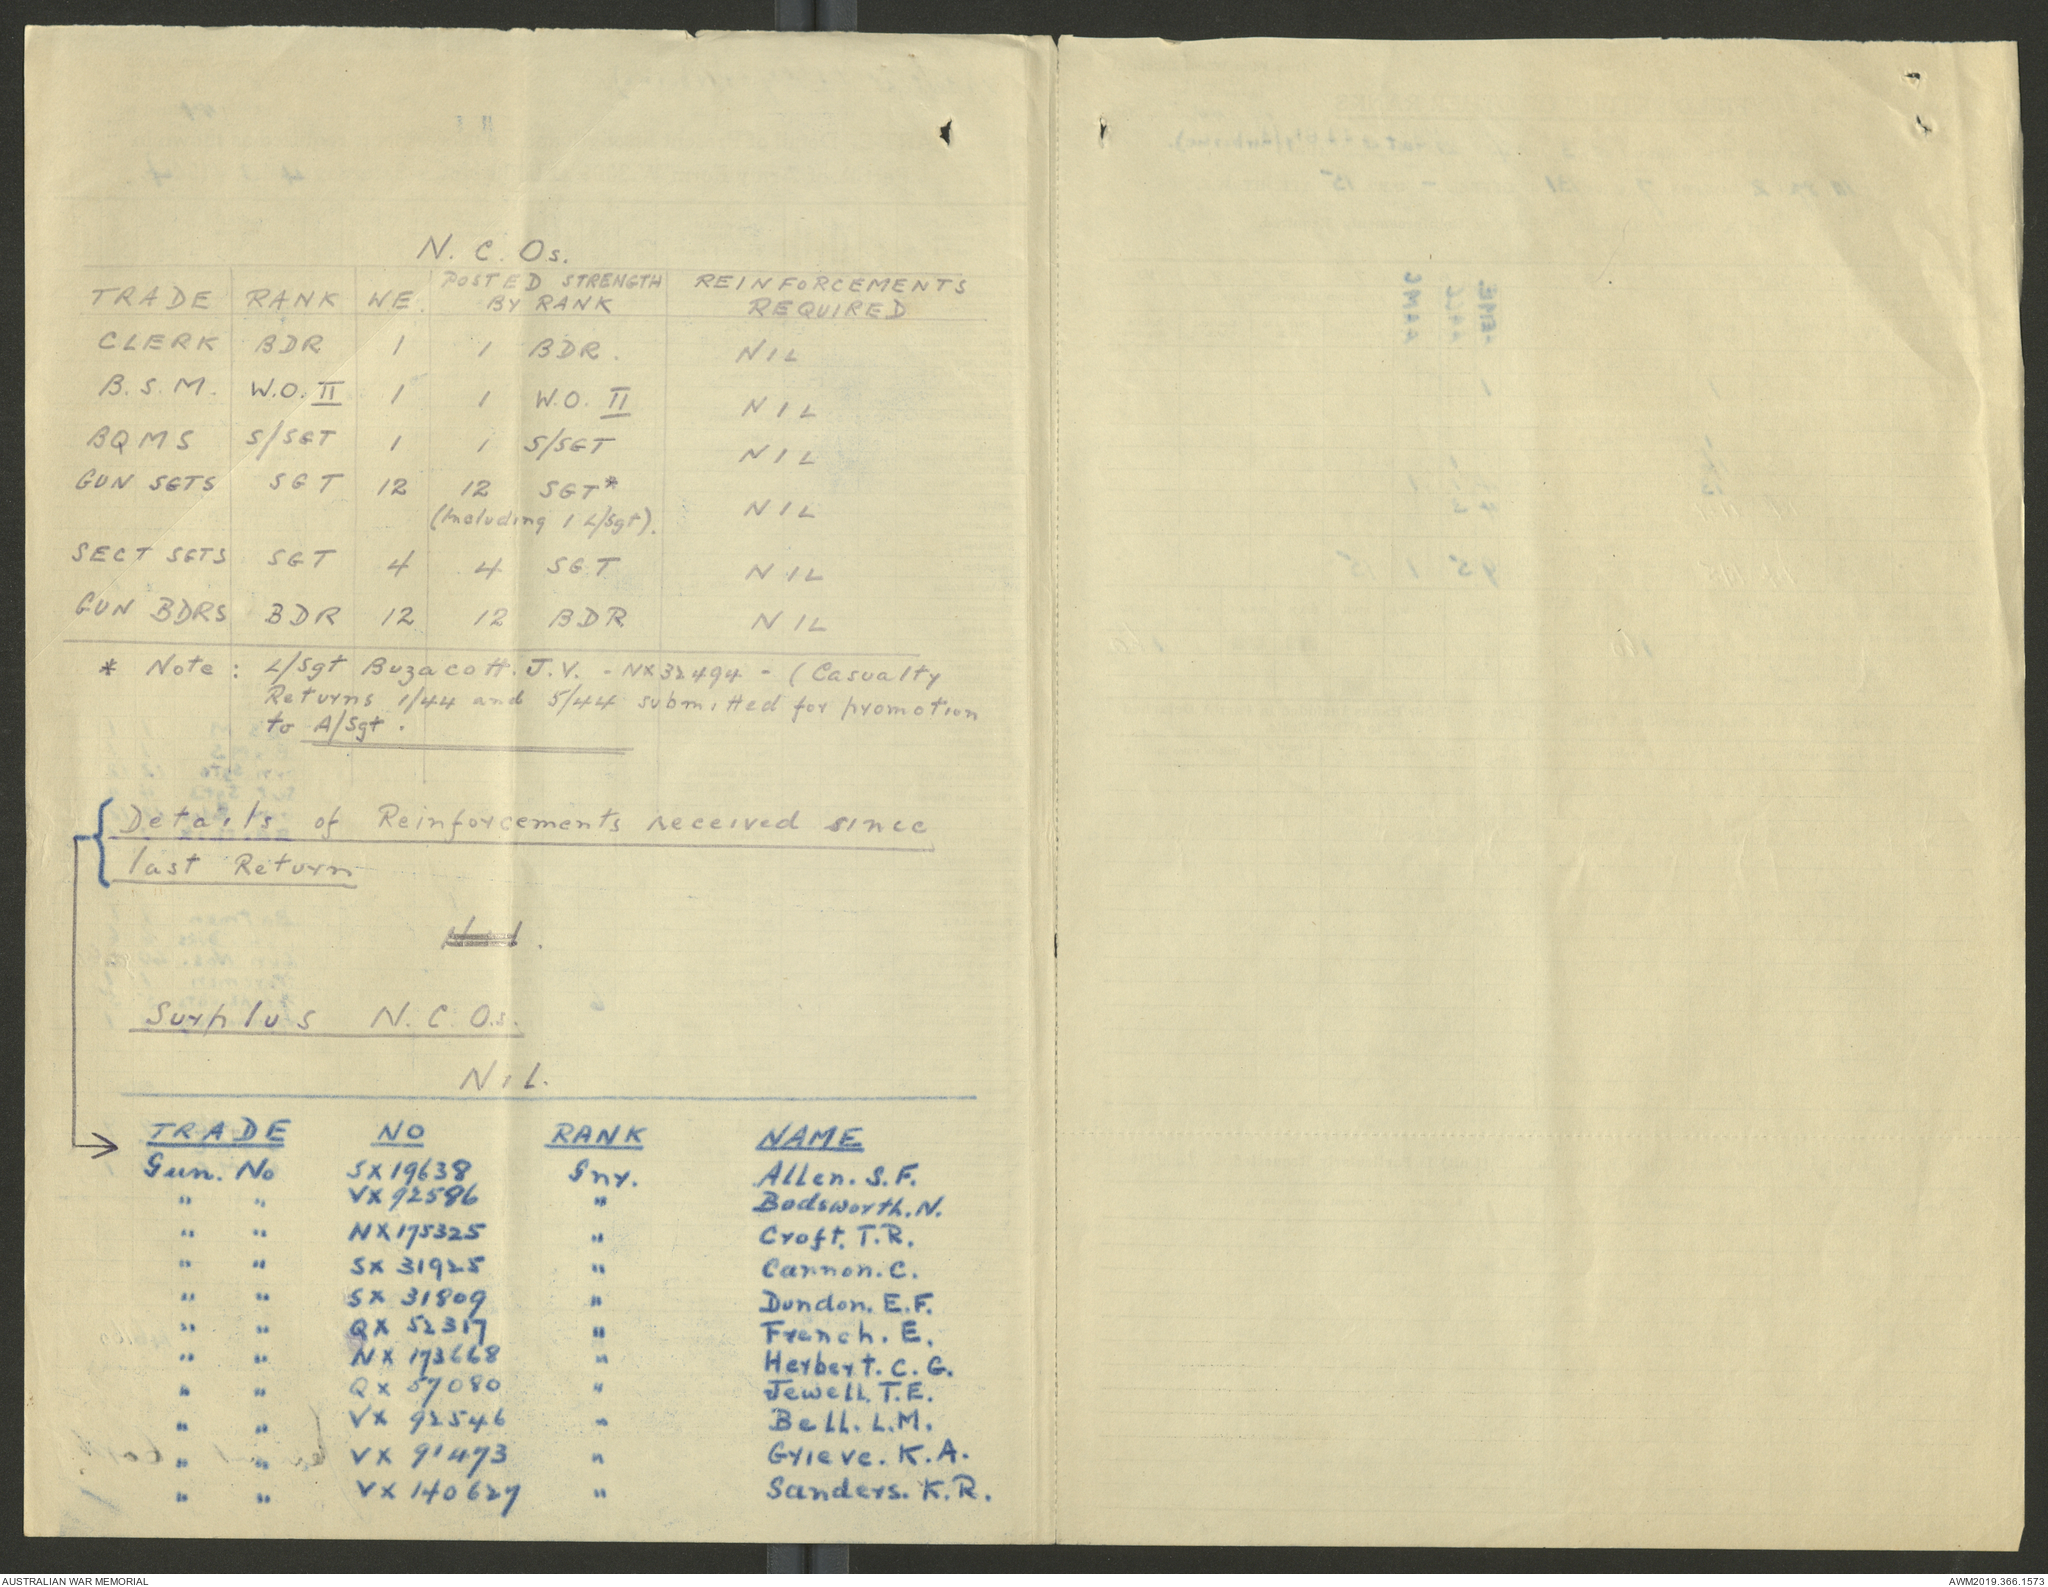 N. C. Os.
TRADE RANK WE. POSTED STRENGTH BY RANK REINFORCEMENTS REQUIRED
CLERK BDR 1 1 BDR. NIL
B.S.M. W.O. II 1 1 W.O. II NIL
BQMS S/SGT 1 1 S/SGT NIL
GUN SGTS SGT 12 12 SGT* NIL
(Including 1 L/Sgt).
SECT SGTS SGT 4 4 SGT NIL
GUN BDRS BDR 12 12 BDR NIL
* Note: L/Sgt Buzacott. J.V. - NX32494 - (Casualty
Returns 1/44 and 5/44 submitted for promotion
to A/Sgt.
Details of Reinforcements received since
last Return
Surplus N.C.Os.
NIL.
TRADE NO RANK NAME
Gun. No SX19638 Gnr. Allen. S.F.
" " VX92586 " Bodsworth. N.
" " NX175325 " Croft. T.R.
" " SX 31925 " Cannon. C.
" " SX 31809 " Dundon. E.F.
" " QX 52317 " French. E.
" " NX 173668 " Herbert. C. G.
" " QX 57080 " Jewell. T.E.
" " VX 92546 " Bell. L.M.
" " VX 91473 " Grieve. K.A.
" " VX 140627 " Sanders. K.R.
AUSTRALIAN WAR MEMORIAL AWM2019.366.1573